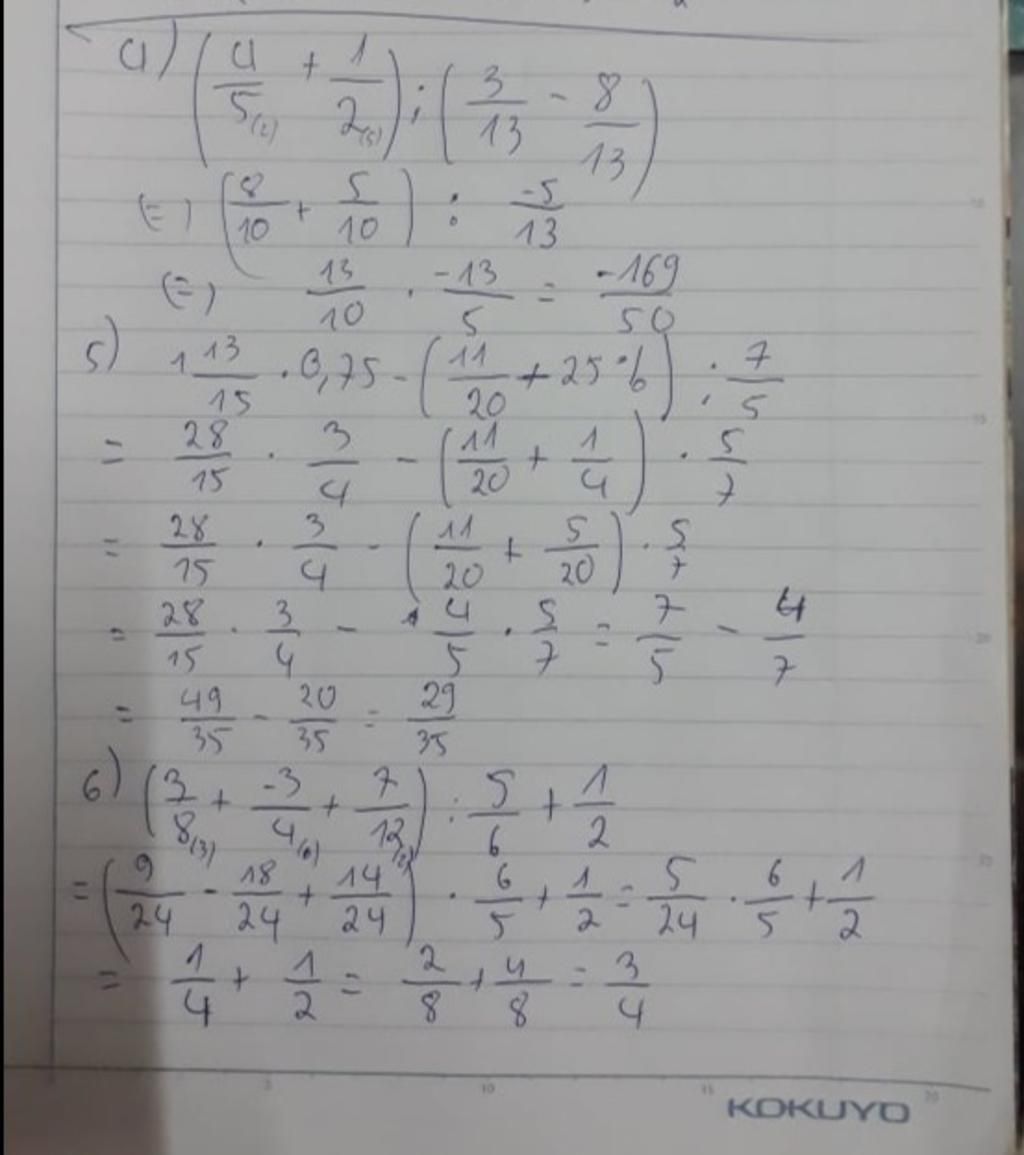 4) (4/5(2) + 1/2(5)) : (3/13 - 8/13)
(=) (8/10 + 5/10) : -5/13
(=) 13/10 . -13/5 = -169/50
5) 1 13/15 . 0,75 - (11/20 + 25%) : 7/5
= 28/15 . 3/4 - (11/20 + 1/4) . 5/7
= 28/15 . 3/4 - (11/20 + 5/20) . 5/7
= 28/15 . 3/4 - 4/5 . 5/7 = 7/5 - 4/7
= 49/35 - 20/35 = 29/35
6) (3/8(3) + -3/4(6) + 7/12(2)) : 5/6 + 1/2
= (9/24 - 18/24 + 14/24) . 6/5 + 1/2 = 5/24 . 6/5 + 1/2
= 1/4 + 1/2 = 2/8 + 4/8 = 3/4
5 10 15 20
KOKUYO